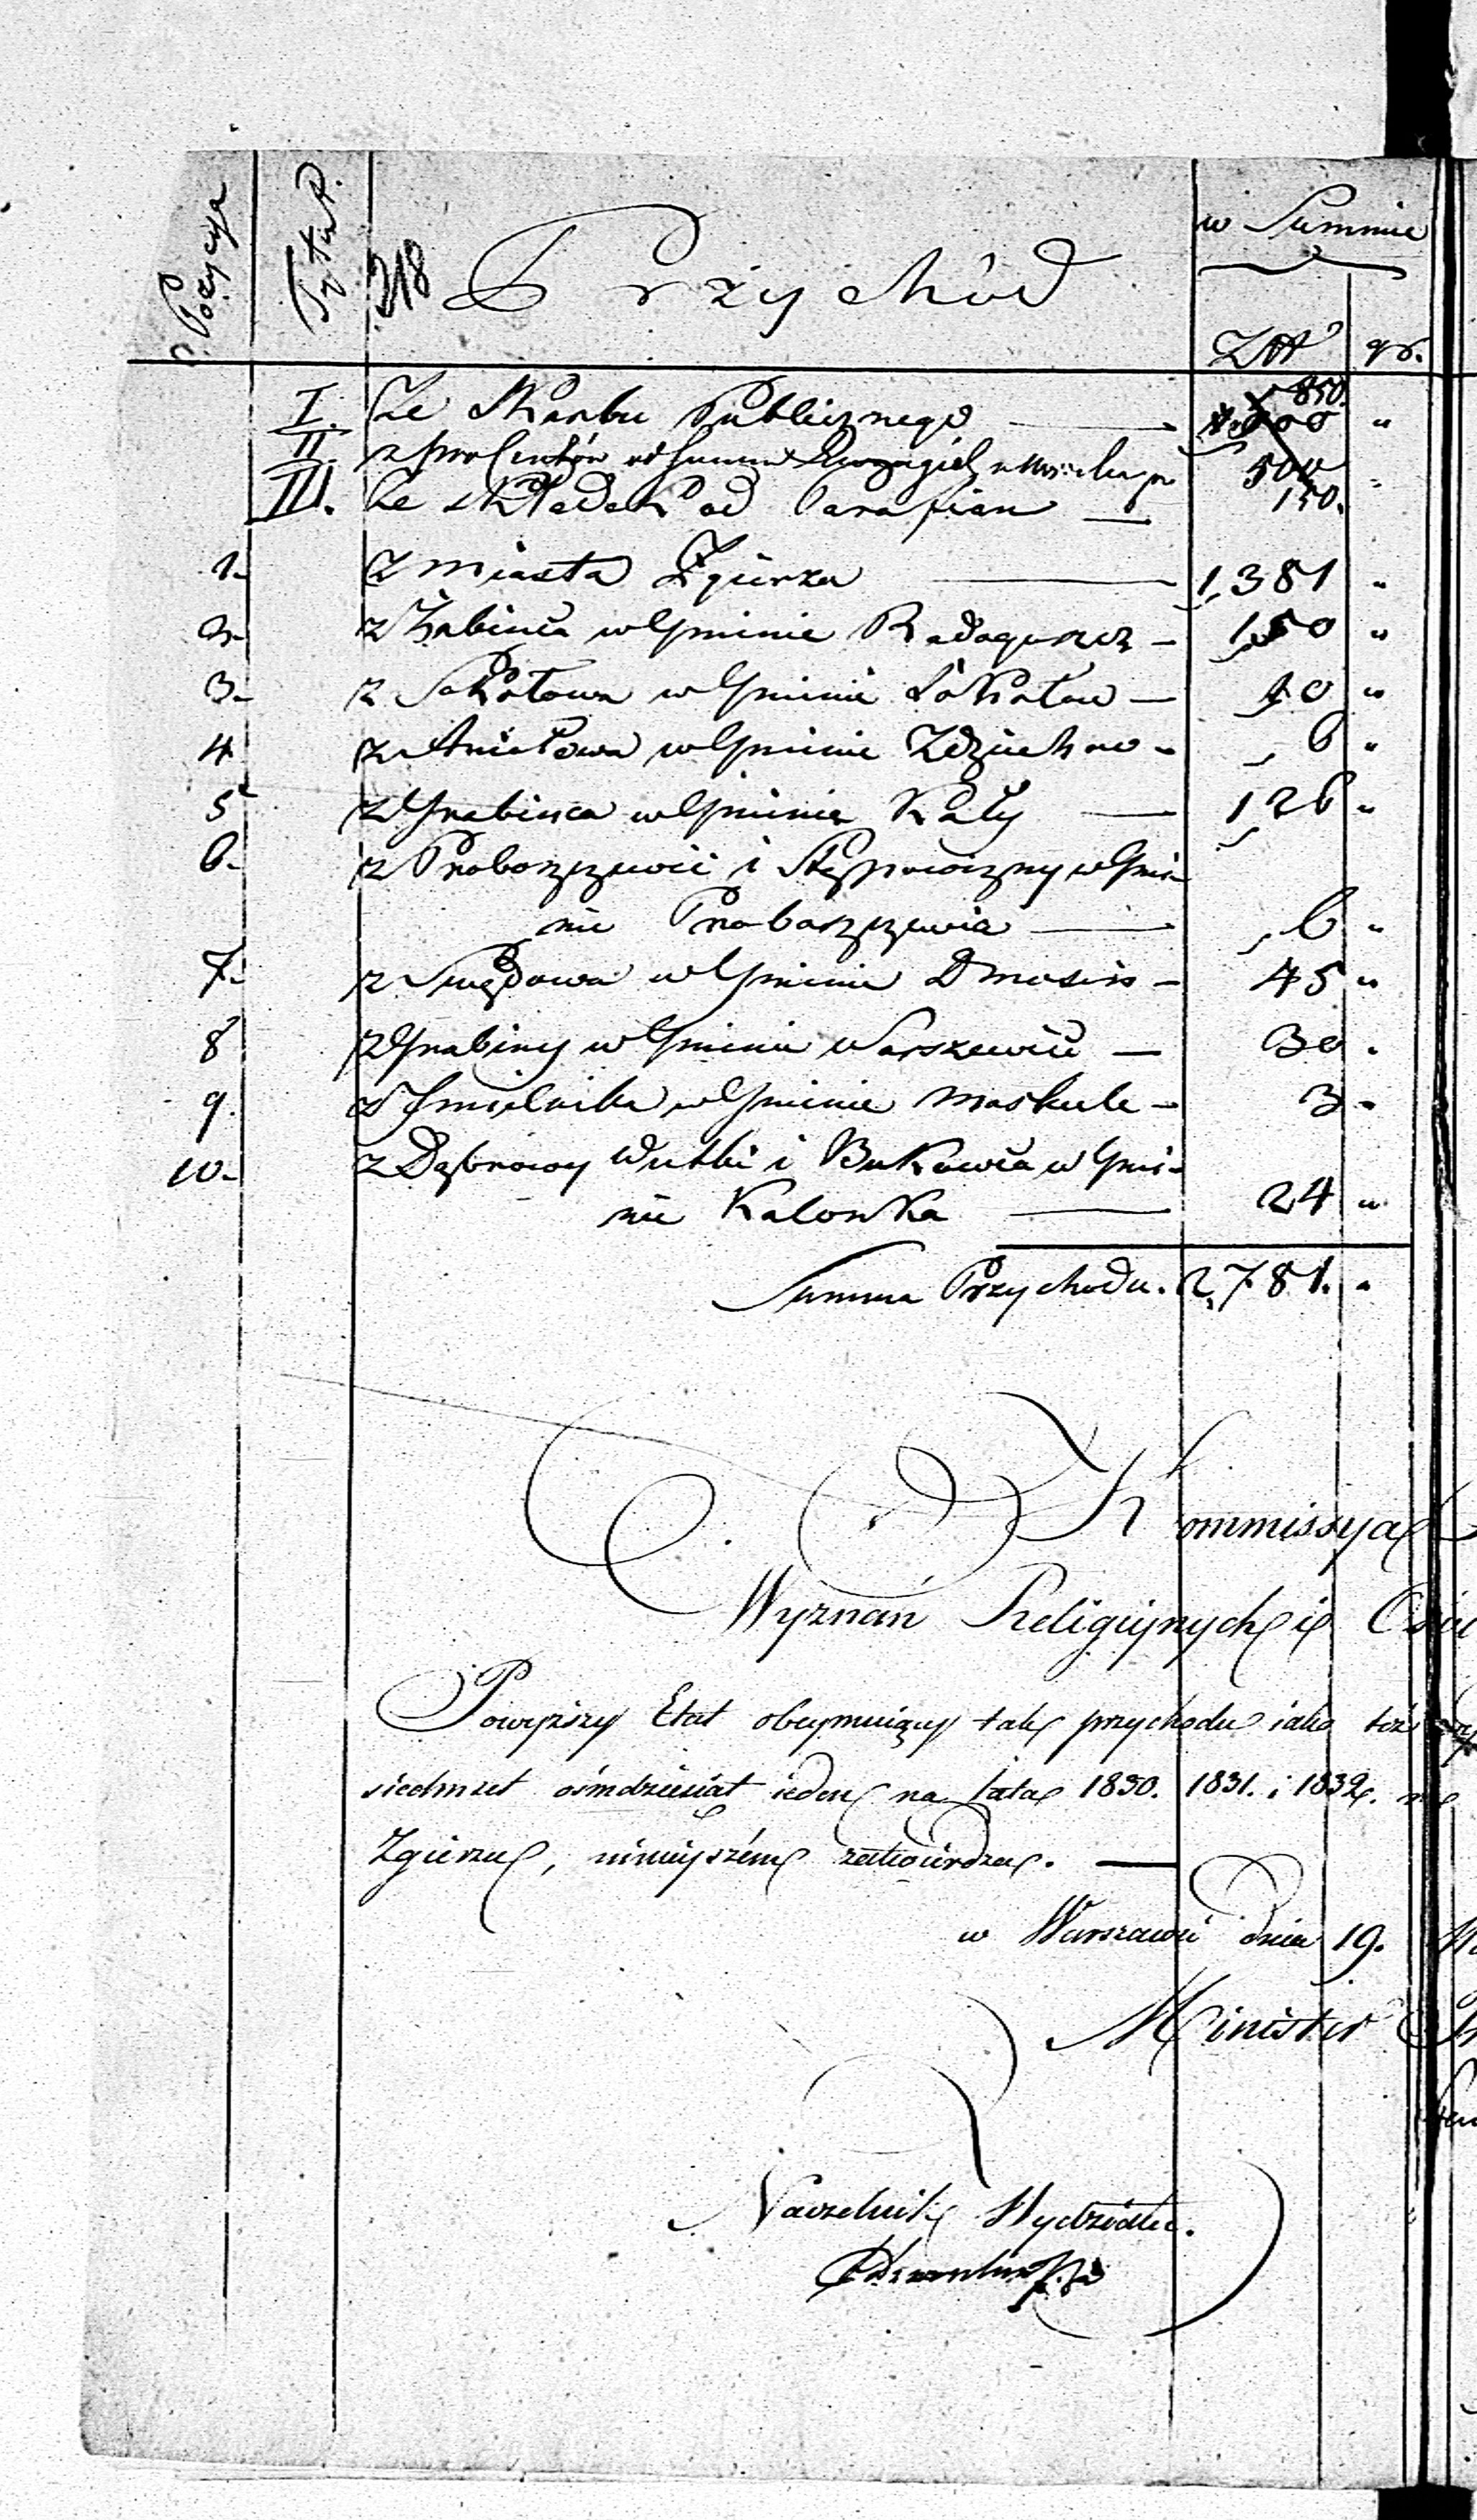 Pozycya Tytuł 218 Przychód w Summie
Złt gr.
850.
I. Ze Skarbu Publicznego — 1,000 "
II. z procentów od Summ 500 "
III. Ze składek od Parafian — 150.
1. Z miasta Zgierza — 1,381 "
2. z Żabieńca w Gminie Radogoszcz - 150 "
3. z Sokołowa w Gminie Sokołow — 10 "
4 z Aniołowa w Gminie Zdziechow - 6 "
5 z Grabieńca w Gminie Kały — 126 "
6. z Proboszczewic i Stępowizny w Gmi-
nie Proboszczewice — 6 "
7. z Swędowa w Gminie Dmosin - 45 "
8 z Grabiny w Gminie Warszewice — 30 "
9. z Jmielnika w Gminie Moskule - 3 "
10. z Dąbrowy Wutki i Bukowca w Gmi-
nie Kalonka — 24 "
Summa Przychodu. 2,781. "
Kommissya
Wyznań Religijnych i
Powyższy Etat obeymuiący tak przychodu iako też
siedmset ośmdziesiąt ieden na lata 1830. 1831. i 1832.
Zgierzu, ninieyszém zatwierdza. —
w Warszawie dnia 19.
Minister
Naczelnik Wydziału.